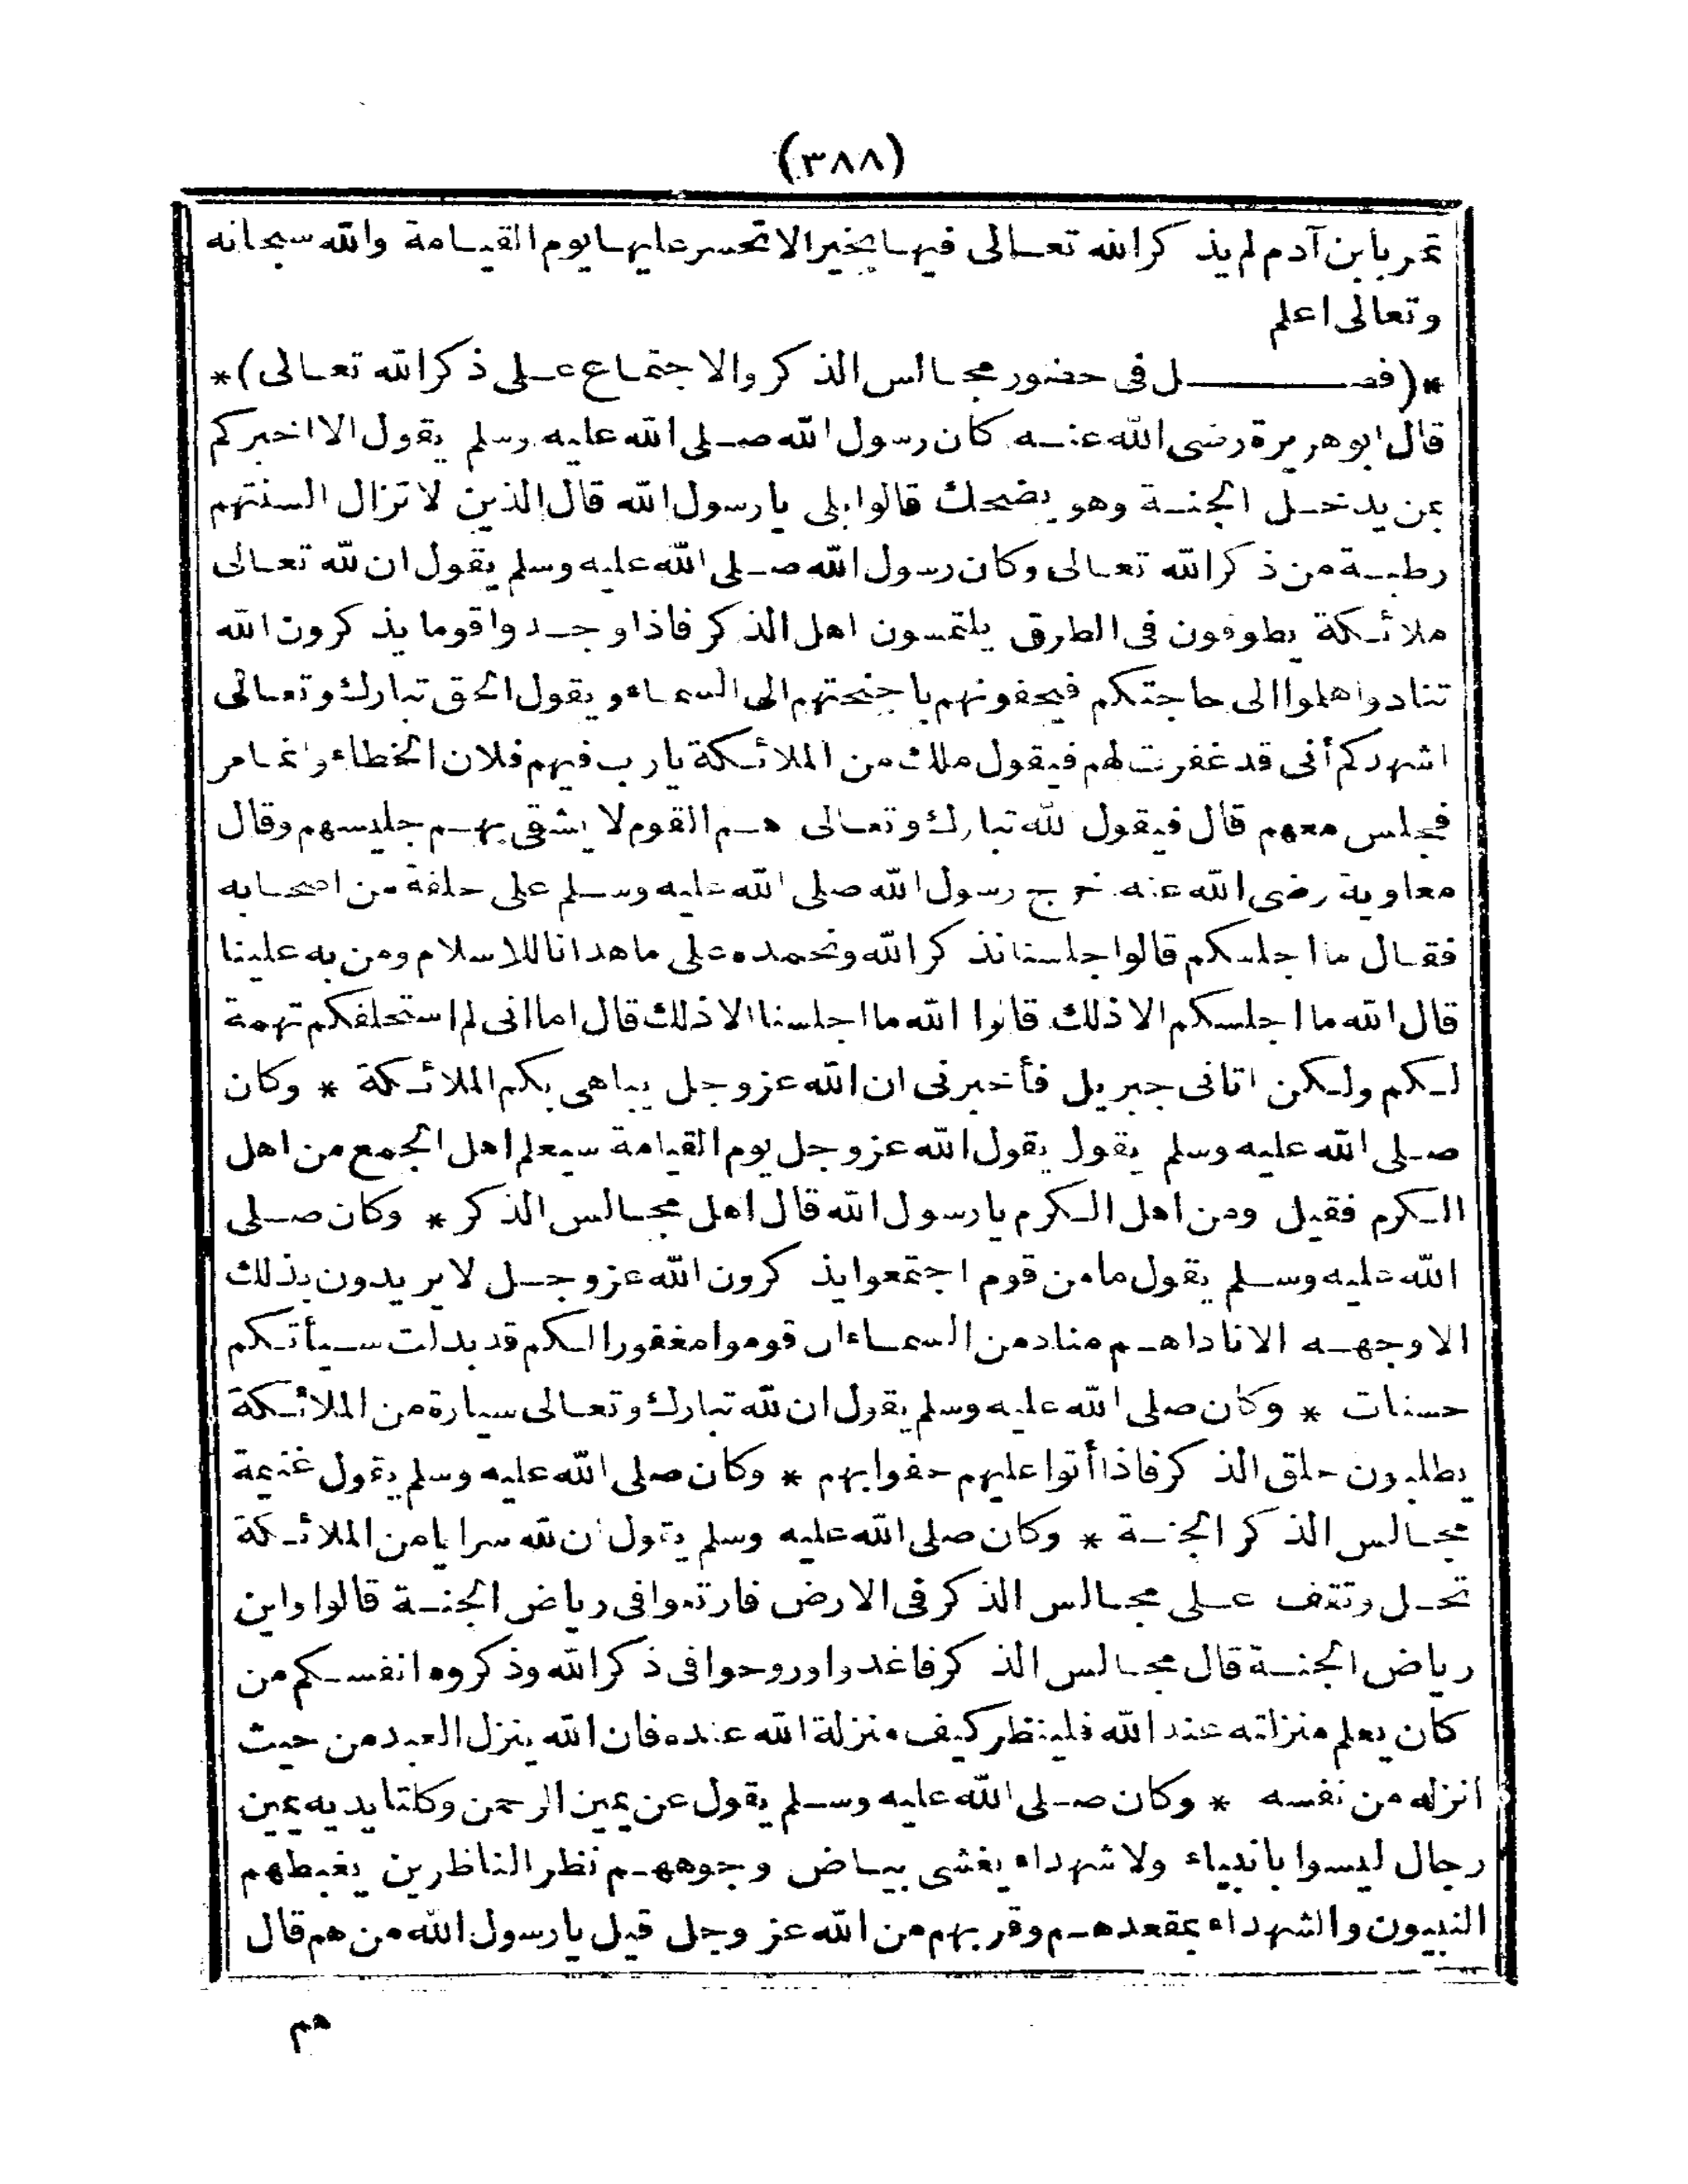 (٣٨٨)
تمر بابن آدم لم يذكر الله تعالى فيها بخير الا تحسر عليها يوم القيامة والله سبحانه
وتعالى اعلم
*(فصل فى حضور مجالس الذكر والاجتماع على ذكر الله تعالى)*
قال ابو هريرة رضى الله عنه كان رسول الله صلى الله عليه وسلم يقول الا اخبركم
بمن يدخل الجنة وهو يضحك قالوا بلى يا رسول الله قال الذين لا تزال السنتهم
رطبة من ذكر الله تعالى وكان رسول الله صلى الله عليه وسلم يقول ان لله تعالى
ملائكة يطوفون فى الطرق يلتمسون اهل الذكر فاذا وجدوا قوما يذكرون الله
تنادوا هلموا الى حاجتكم فيحفونهم باجنحتهم الى السماء ويقول الحق تبارك وتعالى
اشهدكم أنى قد غفرت لهم فيقول ملك من الملائكة يا رب فيهم فلان الخطاء وانما مر
فجلس معهم قال فيقول الله تبارك وتعالى هم القوم لا يشقى بهم جليسهم وقال
معاوية رضى الله عنه خرج رسول الله صلى الله عليه وسلم على حلقة من اصحابه
فقال ما اجلسكم قالوا جلسنا نذكر الله ونحمده على ما هدانا للاسلام ومن به علينا
قال الله ما اجلسكم الا ذلك قالوا الله ما اجلسنا الا ذلك قال اما انى لم استحلفكم تهمة
لكم ولكن اتانى جبريل فأخبرنى ان الله عز وجل يباهى بكم الملائكة * وكان
صلى الله عليه وسلم يقول يقول الله عز وجل يوم القيامة سيعلم اهل الجمع من اهل
الكرم فقيل ومن اهل الكرم يا رسول الله قال اهل مجالس الذكر * وكان صلى
الله عليه وسلم يقول ما من قوم اجتمعوا يذكرون الله عز وجل لا يريدون بذلك
الا وجهه الا ناداهم مناد من السماء ان قوموا مغفورا لكم قد بدلت سيأتكم
حسنات * وكان صلى الله عليه وسلم يقول ان لله تبارك وتعالى سيارة من الملائكة
يطلبون حلق الذكر فاذا أتوا عليهم حفوا بهم * وكان صلى الله عليه وسلم يقول غنيمة
مجالس الذكر الجنة * وكان صلى الله عليه وسلم يقول ان لله سرايا من الملائكة
تحل وتقف على مجالس الذكر فى الارض فارتعوا فى رياض الجنة قالوا واين
رياض الجنة قال مجالس الذكر فاغدوا وروحوا فى ذكر الله وذكروه انفسكم من
كان يعلم منزلته عند الله فلينظر كيف منزلة الله عنده فان الله ينزل العبد من حيث
انزله من نفسه * وكان صلى الله عليه وسلم يقول عن يمين الرحمن وكلتا يديه يمين
رجال ليسوا بانبياء ولا شهداء يغشى بياض وجوههم نظر الناظرين يغبطهم
النبيون والشهداء بمقعدهم وقربهم من الله عز وجل قيل يا رسول الله من هم قال
هم